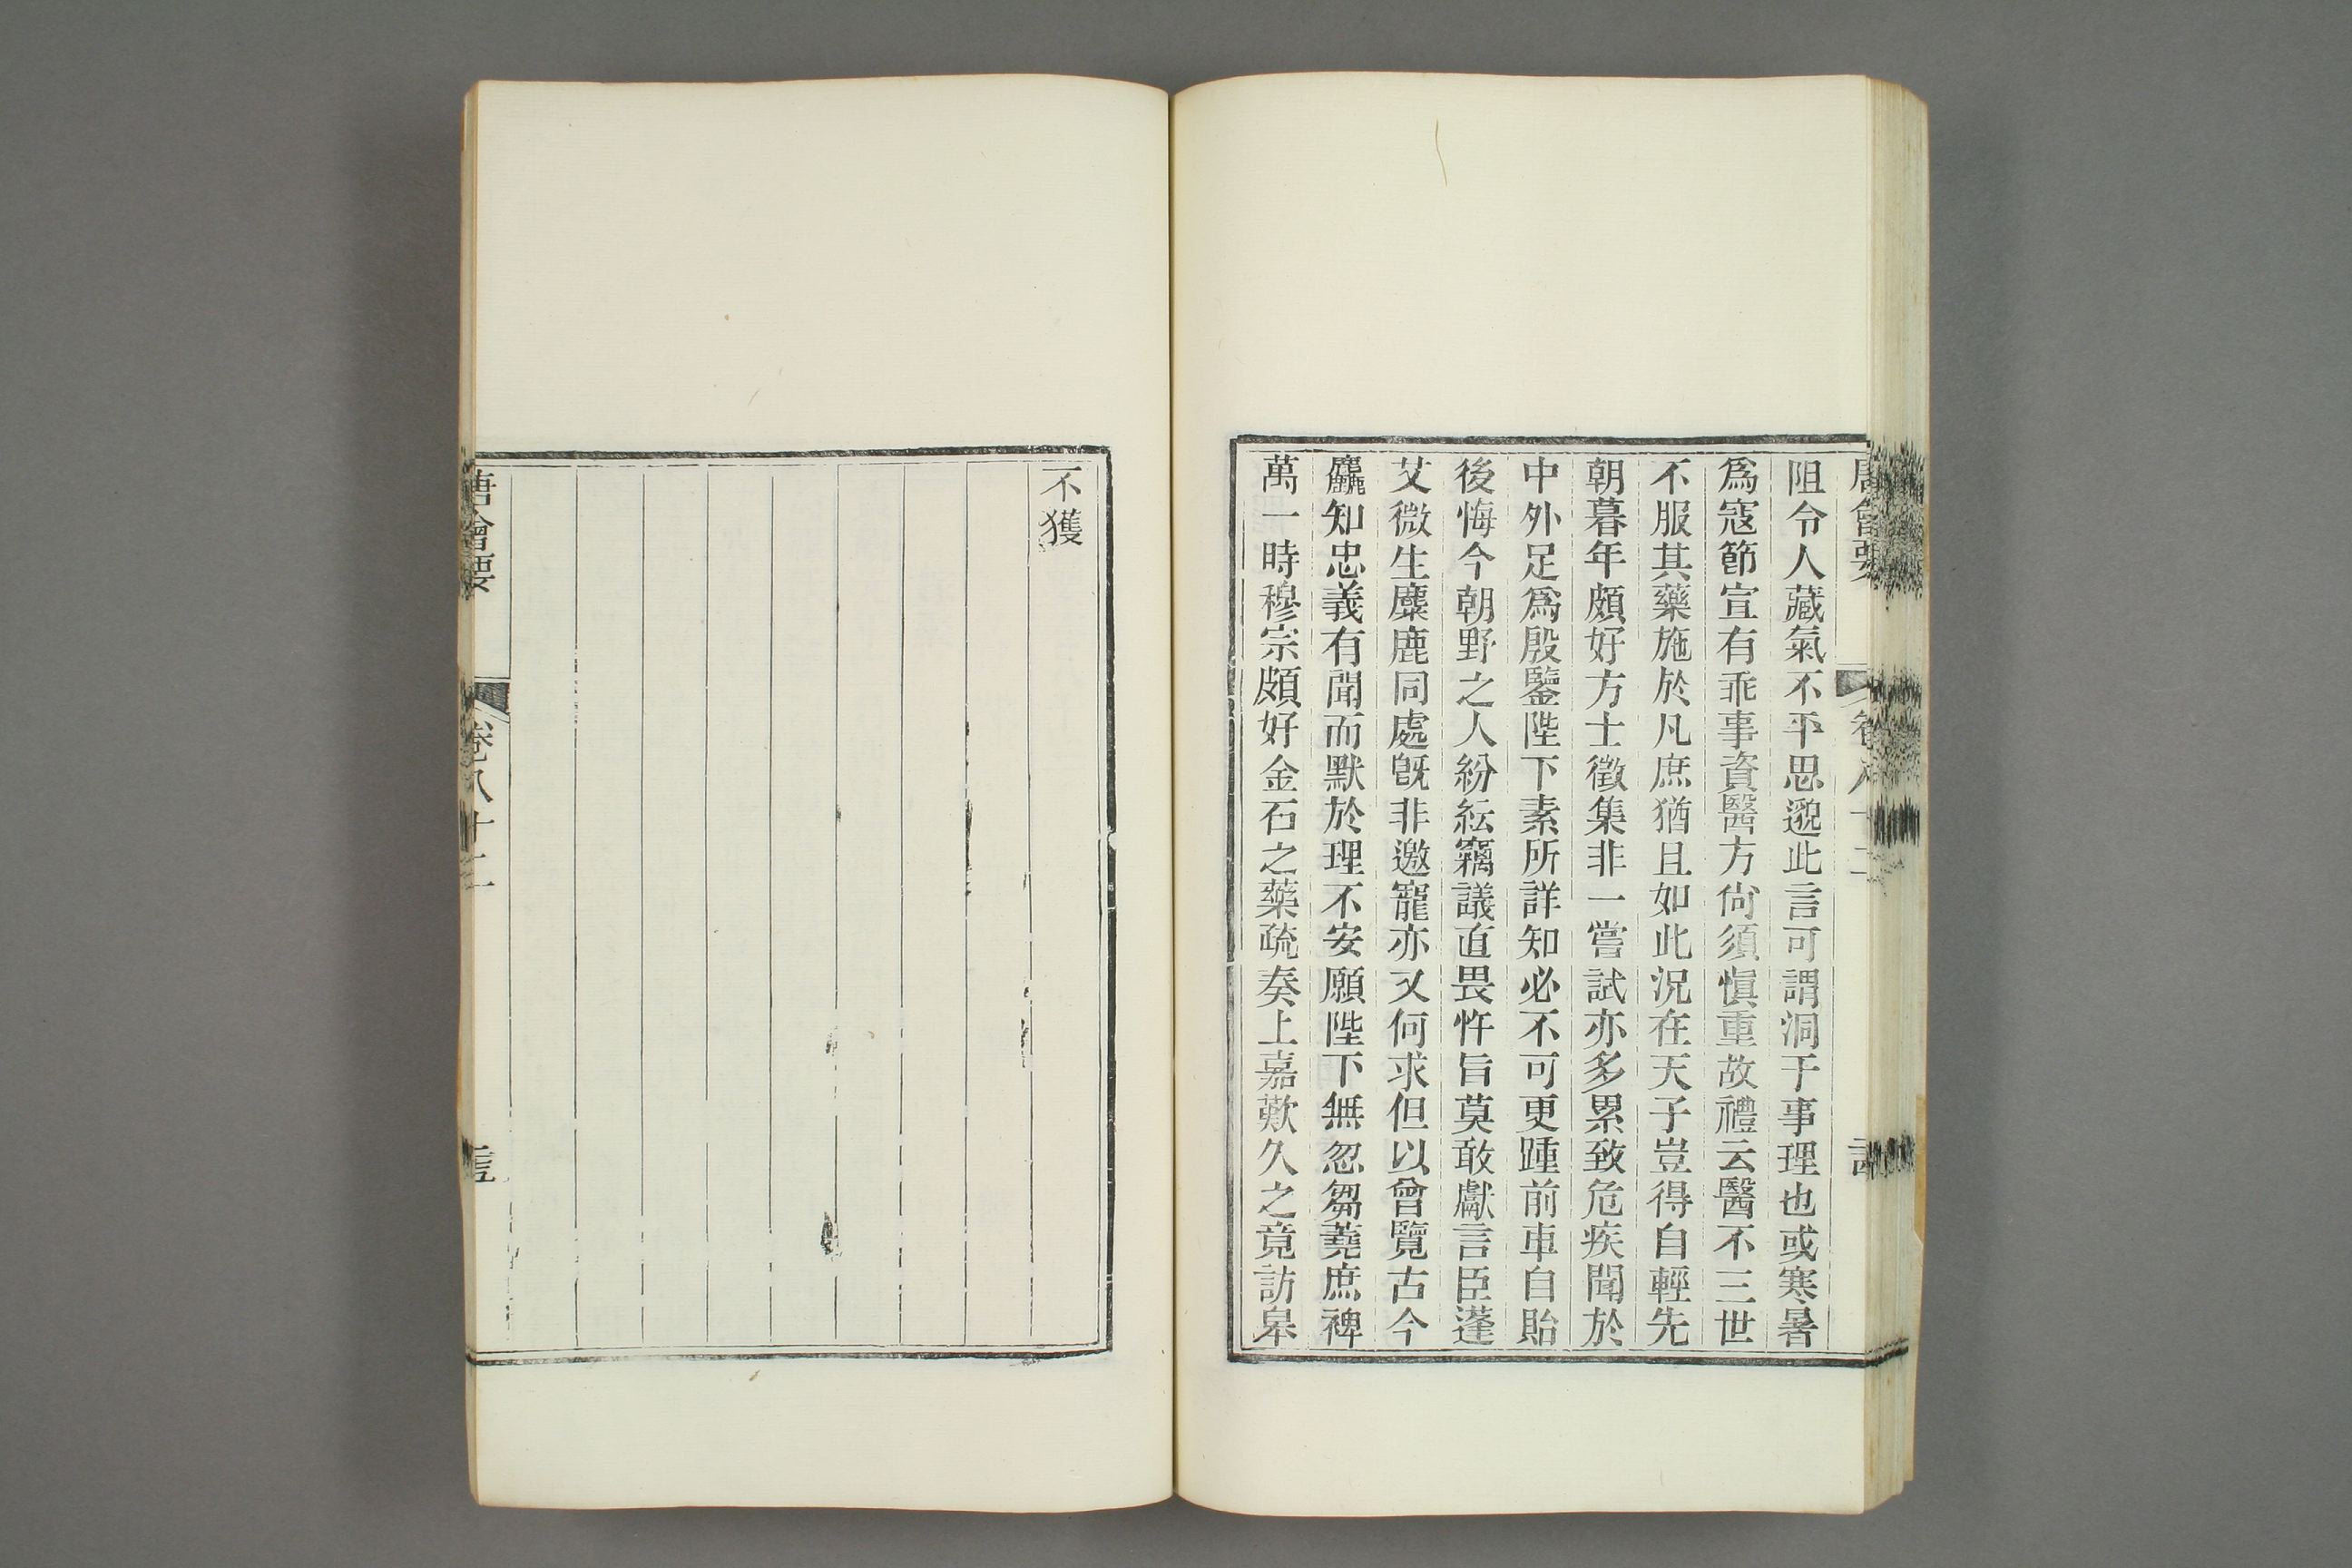 唐會要 卷八十二
阻令人藏氣不平思邈此言可謂洞于事理也或寒暑
爲寇節宣有乖事資醫方尙須愼重故禮云醫不三世
不服其藥施於凡庶猶且如此況在天子豈得自輕先
朝暮年頗好方士徵集非一嘗試亦多累致危疾聞於
中外足爲殷鑒陛下素所詳知必不可更踵前車自貽
後悔今朝野之人紛紜竊議直畏忤旨莫敢獻言臣蓬
艾微生麋鹿同處旣非邀寵亦又何求但以曾覽古今
麤知忠義有聞而默於理不安願陛下無忽芻蕘庶裨
萬一時穆宗頗好金石之藥疏奏上嘉歎久之竟訪皋
不獲
唐會要 卷八十二